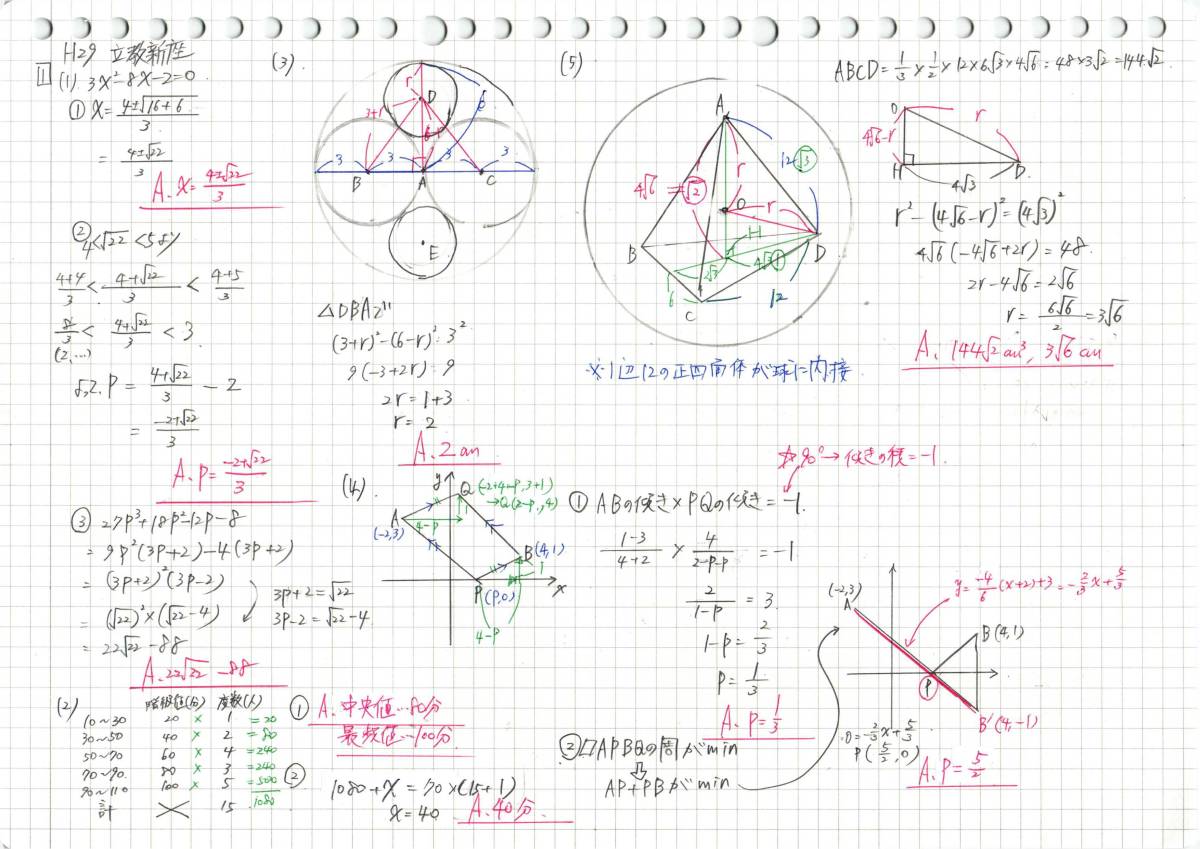 H29 立教新座
1 (1) 3x²-8x-2=0.
① x=\frac{4±√16+6}{3}
=\frac{4±√22}{3}
A. x=\frac{4±√22}{3}
② 4<√22<5より
\frac{4+4}{3}<\frac{4+√22}{3}<\frac{4+5}{3}
\frac{8}{3}<\frac{4+√22}{3}<3
(2,...)
よって. P=\frac{4+√22}{3}-2
=\frac{-2+√22}{3}
A. P=\frac{-2+√22}{3}
③ 27P³+18P²-12P-8
=9P²(3P+2)-4(3P+2)
=(3P+2)²(3P-2)
3P+2=√22
3P-2=√22-4
=(√22)²×(√22-4)
=22√22-88
A. 22√22-88
(2) 階級値(分) 度数(人)
10~30 20 × 1 =20
30~50 40 × 2 =80
50~70 60 × 4 =240
70~90 80 × 3 =240
90~110 100 × 5 =500
計 15 1080
① A. 中央値…80分
最頻値…100分
② 1080+x=70×(15+1)
x=40
A. 40分
(3).
r
D
3+r
6-r
3 3 3 3
B A C
E
△DBAで
(3+r)²-(6-r)²=3²
9(-3+2r)=9
2r=1+3
r=2
A. 2cm
(4).
y
Q (-2+4-P, 3+1)
→Q(2-P, 4)
A
(-2,3)
4-P
1
B(4,1)
1
x
P(P,0)
4-P
☆90°→傾きの積=-1.
① ABの傾き×PQの傾き=-1.
\frac{1-3}{4+2}×\frac{4}{2-P-P}=-1
\frac{2}{1-P}=3.
1-P=\frac{2}{3}
P=\frac{1}{3}
A. P=\frac{1}{3}
② □APBQの周がmin
⇩
AP+PBがmin
y=\frac{-4}{6}(x+2)+3=-\frac{2}{3}x+\frac{5}{3}
(-2,3)
A
B(4,1)
P
B'(4,-1)
0=-\frac{2}{3}x+\frac{5}{3}
P(\frac{5}{2},0)
A. P=\frac{5}{2}
(5)
A
12 √3
4√6 = √2
r
O
r
B
H
D
4√3 ①
2√3
6
12
C
※1辺12の正四面体が球に内接
ABCD=\frac{1}{3}×\frac{1}{2}×12×6√3×4√6=48×3√2=144√2
O
r
4√6-r
H
4√3
D.
r²-(4√6-r)²=(4√3)²
4√6(-4√6+2r)=48.
2r-4√6=2√6
r=\frac{6√6}{2}=3√6
A. 144√2cm³, 3√6cm